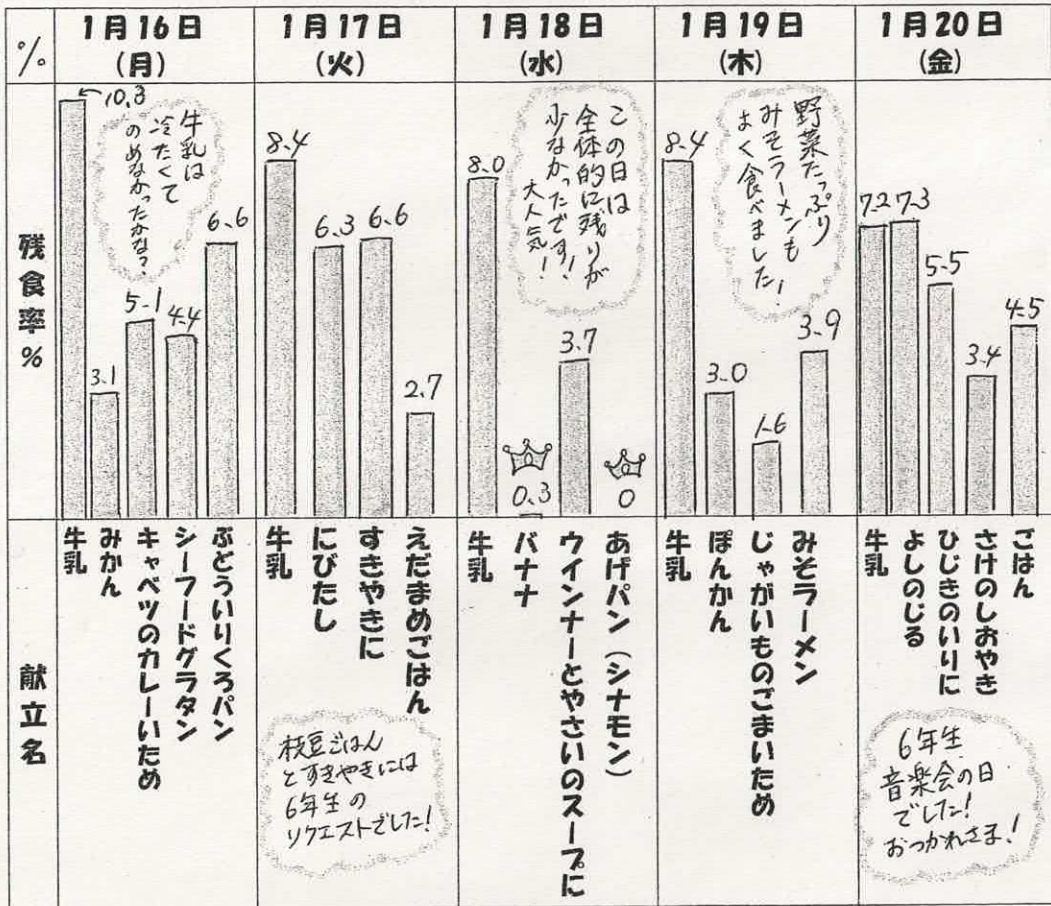 %
1月16日
(月)
1月17日
(火)
1月18日
(水)
1月19日
(木)
1月20日
(金)
残食率%
10.3
3.1
5.1
4.4
6.6
牛乳は
冷たくて
のめなかったかな?
8.4
6.3
6.6
2.7
8.0
0.3
3.7
0
この日は
全体的に残りが
少なかったです!
大人気!
8.4
3.0
1.6
3.9
野菜たっぷり
みそラーメンも
よく食べました!
7.2
7.3
5.5
3.4
4.5
献立名
牛乳
みかん
キャベツのカレーいため
シーフードグラタン
ぶどういりくろパン
牛乳
にびたし
すきやきに
えだまめごはん
枝豆ごはん
とすきやきには
6年生の
リクエストでした!
牛乳
バナナ
ウインナーとやさいのスープに
あげパン(シナモン)
牛乳
ぽんかん
じゃがいものごまいため
みそラーメン
牛乳
よしのじる
ひじきのいりに
さけのしおやき
ごはん
6年生
音楽会の日
でした!
おつかれさま!